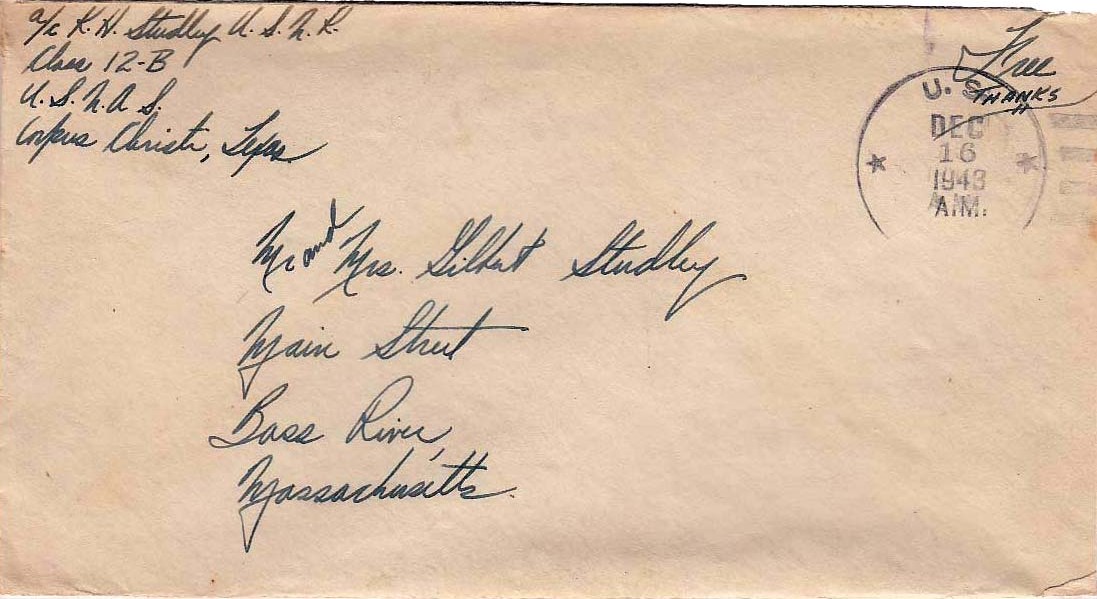 A/c K. H. Studley U. S. N. R.
Class 12-B
U. S. N. A. S.
Corpus Christi, Texas
Free
THANKS
U. S.
DEC
16
1943
A.M.
Mr and Mrs. Gilbert Studley
Main Street
Bass River,
Massachusetts.